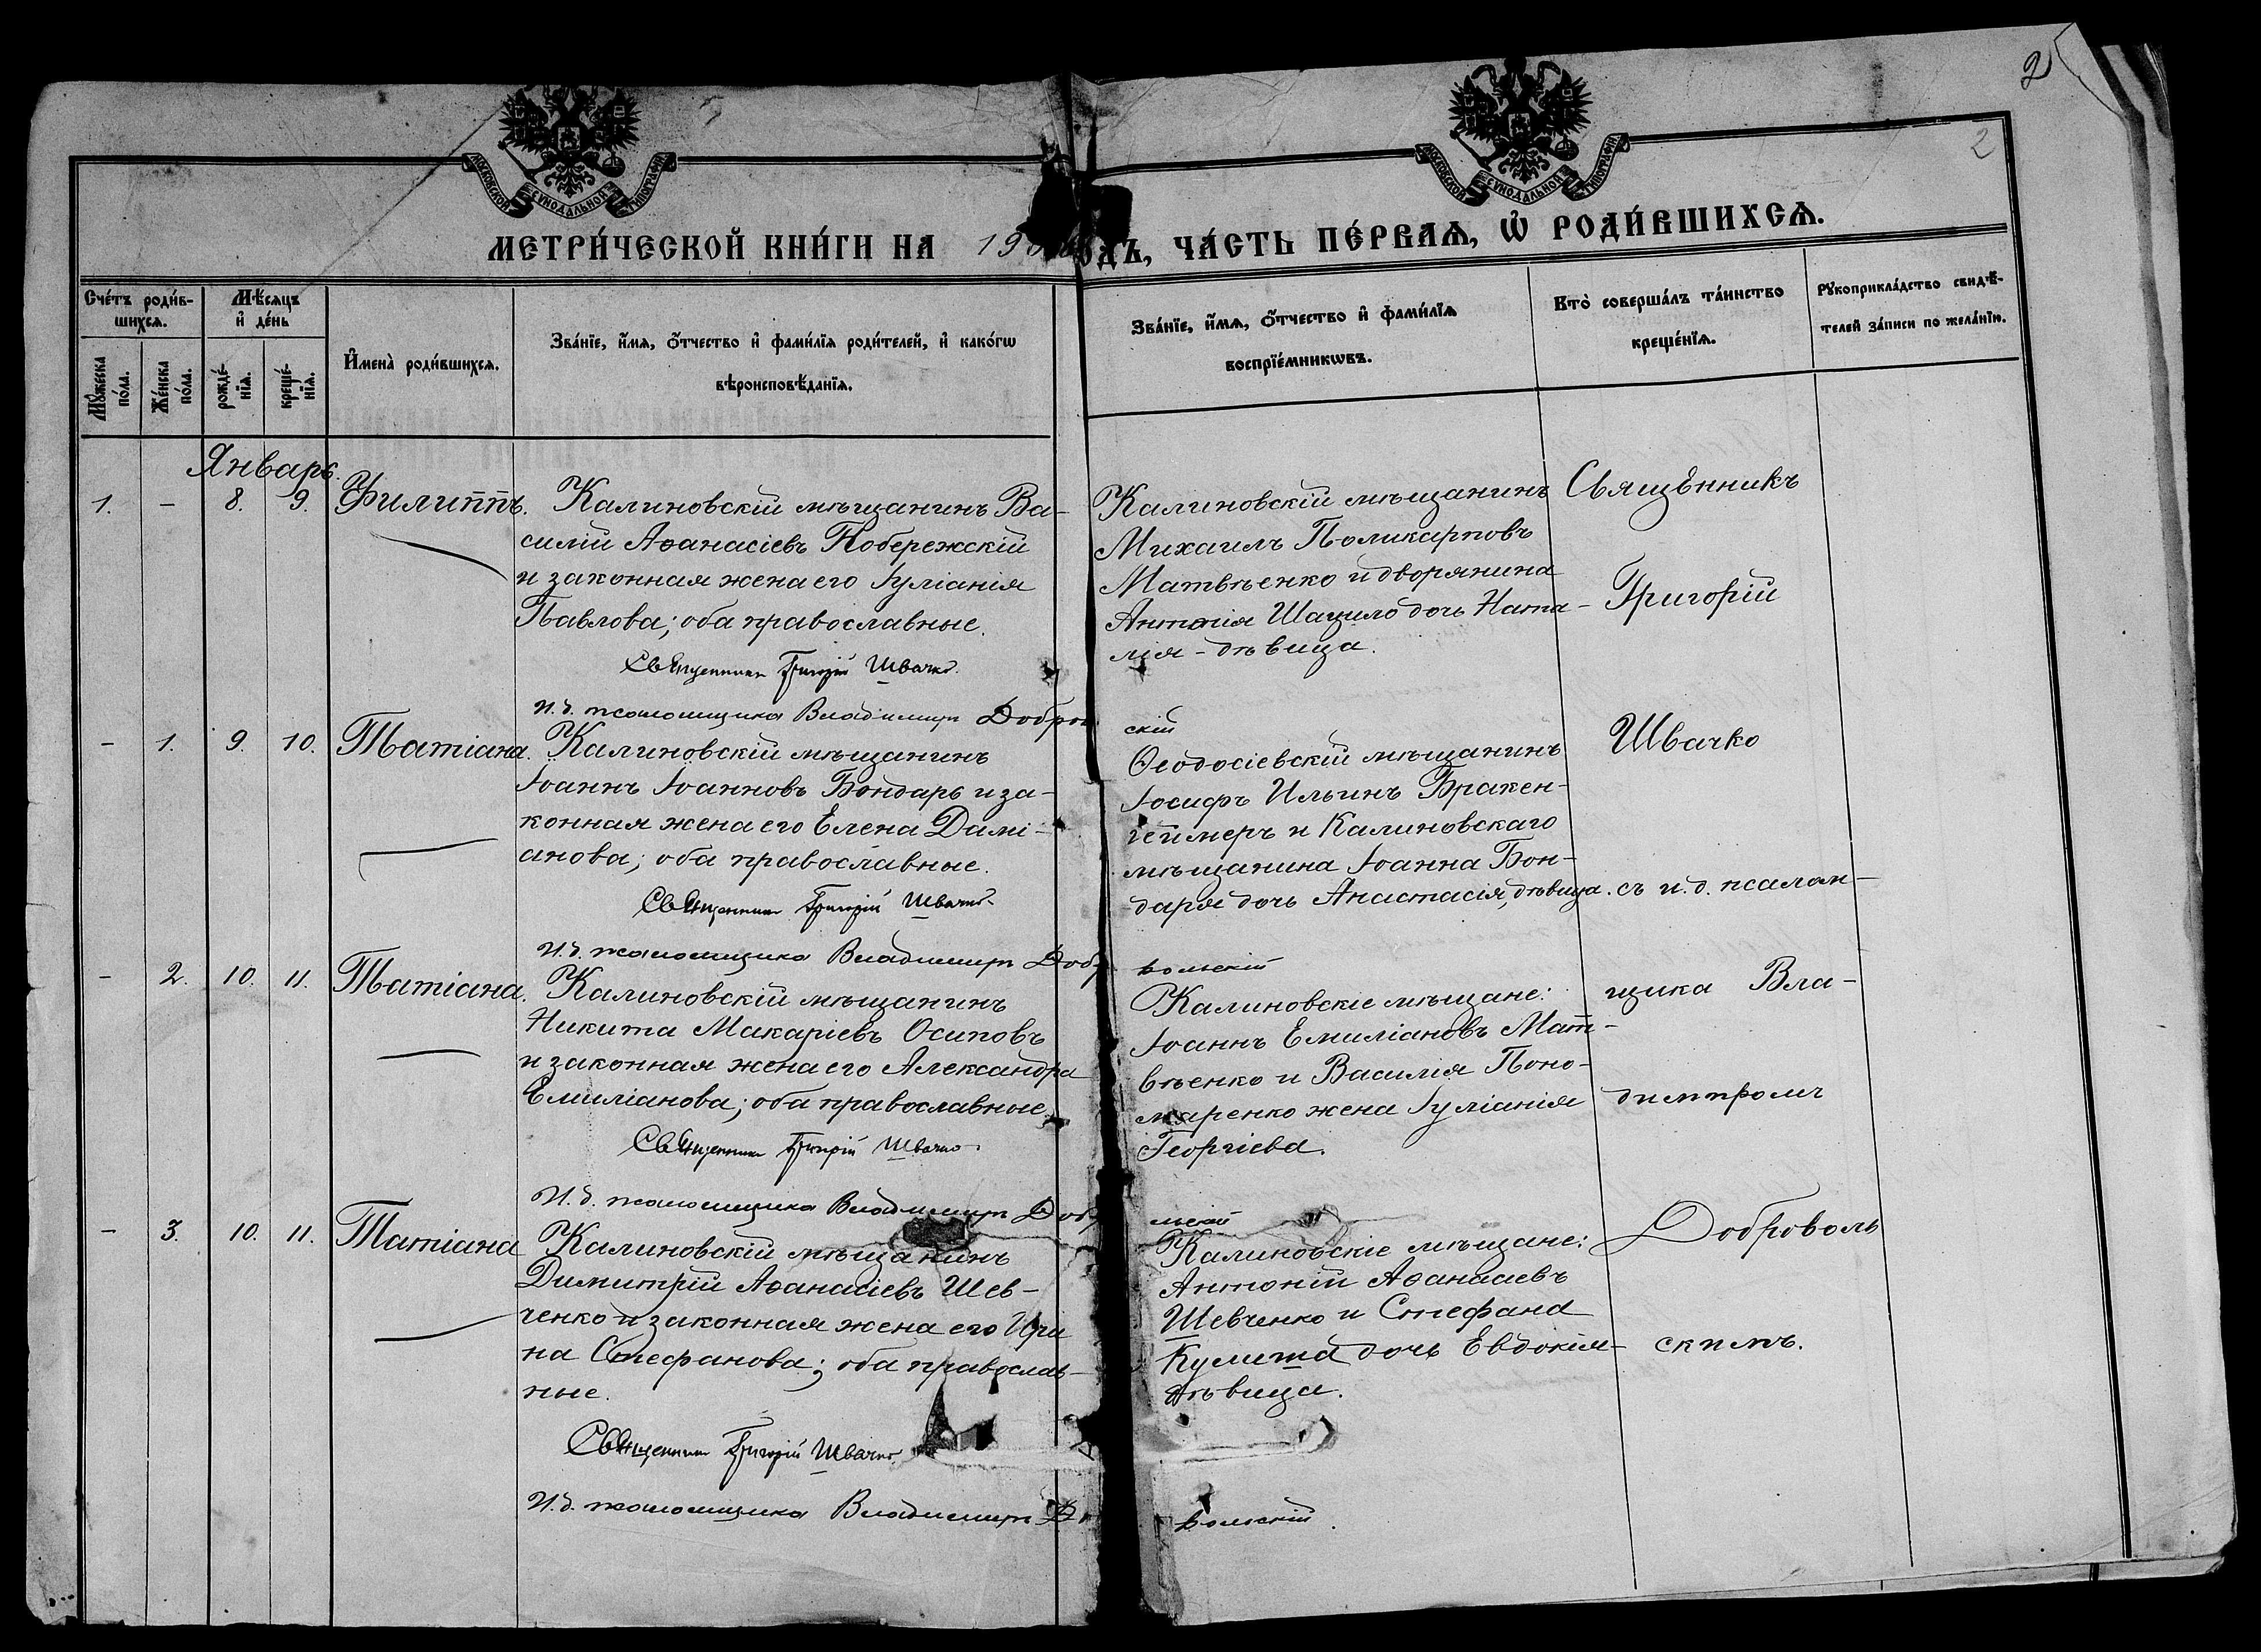 2
2
МОСКОВСКОЙ СѴНОДАЛЬНОЙ ТИПОГРАФІИ
МОСКОВСКОЙ СѴНОДАЛЬНОЙ ТИПОГРАФІИ
МЕТРИ́ЧЕСКОЙ КНИ́ГИ НА 190
ОДЪ, ЧА́СТЬ ПЕ́РВАѦ, Ѡ҆ РОДИ́ВШИХСѦ.
Сче́тъ роди́в-
шихсѧ.
Мѣ́сяцъ
и҆ де́нь
Мꙋ́жеска
по́ла.
Же́нска
по́ла.
рожде́-
нїѧ.
креще́-
нїѧ.
И҆мена̀ роди́вшихсѧ.
Зва́нїе, и҆́мѧ, ѻ҆́тчество и҆ фами́лїѧ роди́телей, и҆ како́гѡ
вѣроисповѣ́данїѧ.
Зва́нїе, и҆́мѧ, ѻ҆́тчество и҆ фами́лїѧ
воспрїе́мникѡвъ.
Кто̀ соверша́лъ та́инство
креще́нїѧ.
Рꙋкоприкла́дство свидѣ́-
телей за́писи по жела́нїю.
Январь.
1. - 8. 9. Филиппъ.
Калиновскій мѣщанинъ Ва-
силій Аѳанасіевъ Побережскій
и законная жена его Іуліанія
Павлова; оба православные.
Священникъ Григорій Швачко.
И. д. псаломщика Владимиръ Добро
скій
Калиновскій мѣщанинъ
Михаилъ Поликарповъ
Матвѣенко и дворянина
Антонія Шацило дочь Ната-
лія - дѣвица.
Священникъ
Григорій
Швачко
съ и. д. псалом-
щика Вла-
димиромъ
Доброволь
скимъ.
- 1. 9. 10. Татіана.
Калиновскій мѣщанинъ
Іоаннъ Іоанновъ Бондарь и за-
конная жена его Елена Дамі-
анова; оба православные.
Священникъ Григорій Швачко.
И. д. псаломщика Владимиръ Доб
вольскій
Ѳеодосіевскій мѣщанинъ
Іосифъ Ильинъ Бракен-
геймеръ и Калиновскаго
мѣщанина Іоанна Бон-
даря дочь Анастасія, дѣвица.
- 2. 10. 11. Татіана.
Калиновскій мѣщанинъ
Никита Макаріевъ Осиповъ
и законная жена его Александра
Емиліанова; оба православные.
Священникъ Григорій Швачко.
И. д. псаломщика Владимиръ Доб
льскій
Калиновскіе мѣщане:
Іоаннъ Емиліановъ Мат-
вѣенко и Василія Поно-
маренко жена Іуліанія
Георгіева.
- 3. 10. 11. Татіана
Калиновскій мѣщанинъ
Димитрій Аѳанасіевъ Шев-
ченко и законная жена его Ири
на Стефанова; оба православ-
ные.
Священникъ Григорій Швачко.
И. д. псаломщика Владимиръ Д
вольскій.
Калиновскіе мѣщане:
Антоній Аѳанасіевъ
Шевченко и Стефана
Кулиша дочь Евдокія-
дѣвица.